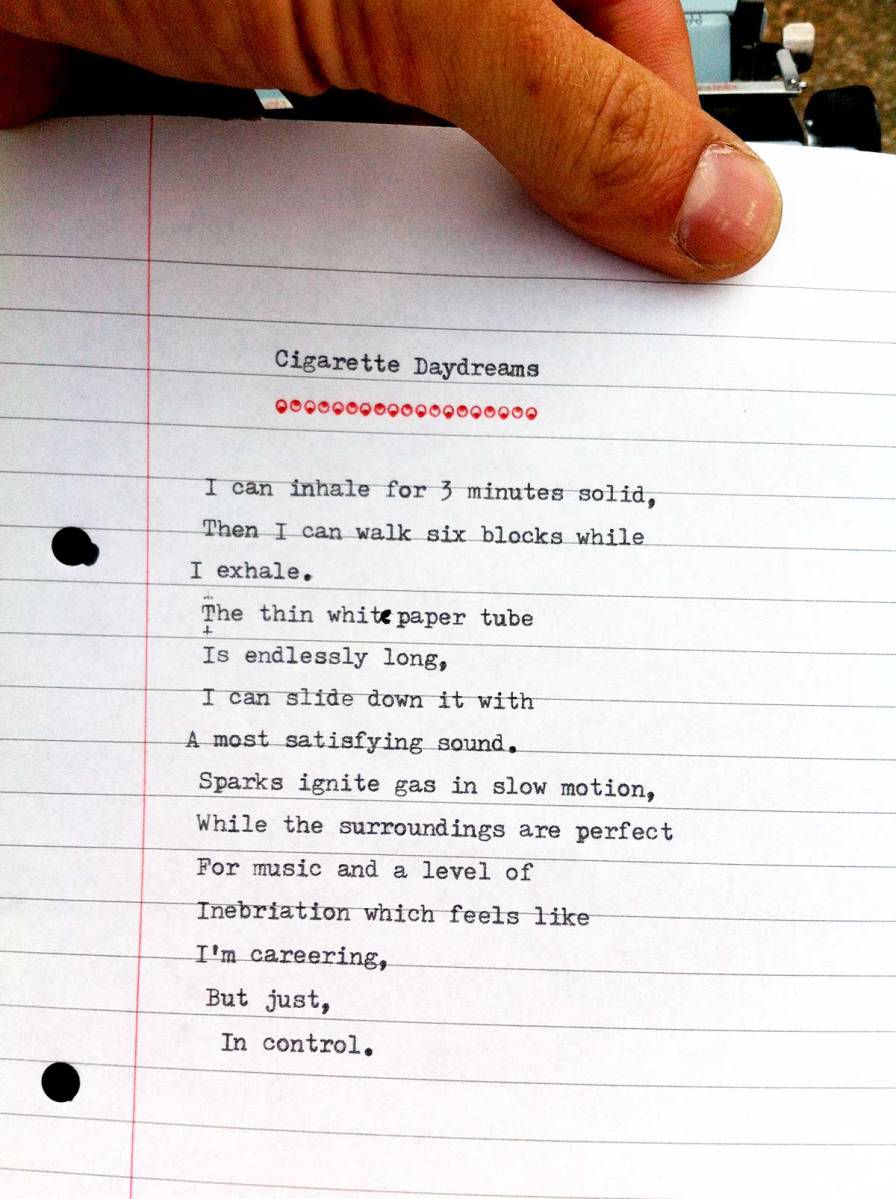 Cigarette Daydreams
I can inhale for 3 minutes solid,
Then I can walk six blocks while
I exhale.
The thin white paper tube
Is endlessly long,
I can slide down it with
A most satisfying sound.
Sparks ignite gas in slow motion,
While the surroundings are perfect
For music and a level of
Inebriation which feels like
I'm careering,
But just,
In control.